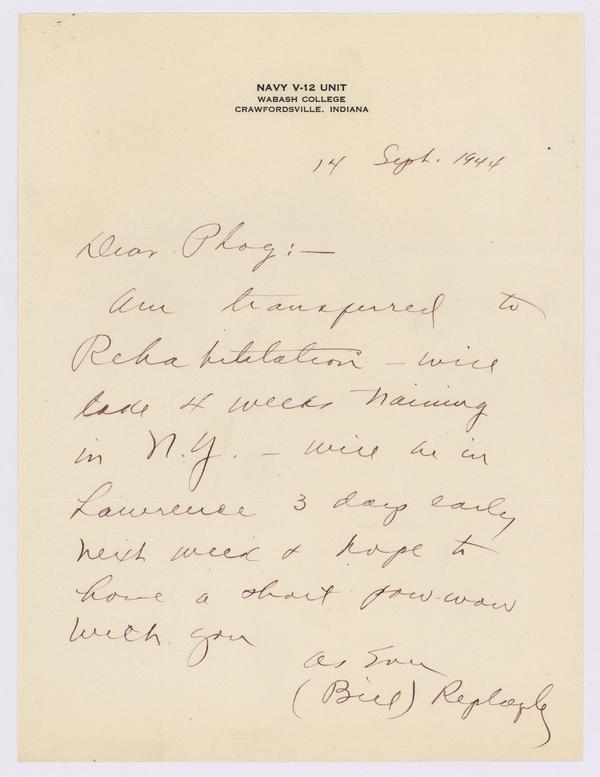 NAVY V-12 UNIT
WABASH COLLEGE
CRAWFORDSVILLE, INDIANA
14 Sept. 1944
Dear Phog:—
Am transferred to
Rehabilitation – will
take 4 weeks training
in N.Y. – will be in
Lawrence 3 days early
next week & hope to
have a short pow-wow
with you
As Ever
(Bill) Replogle